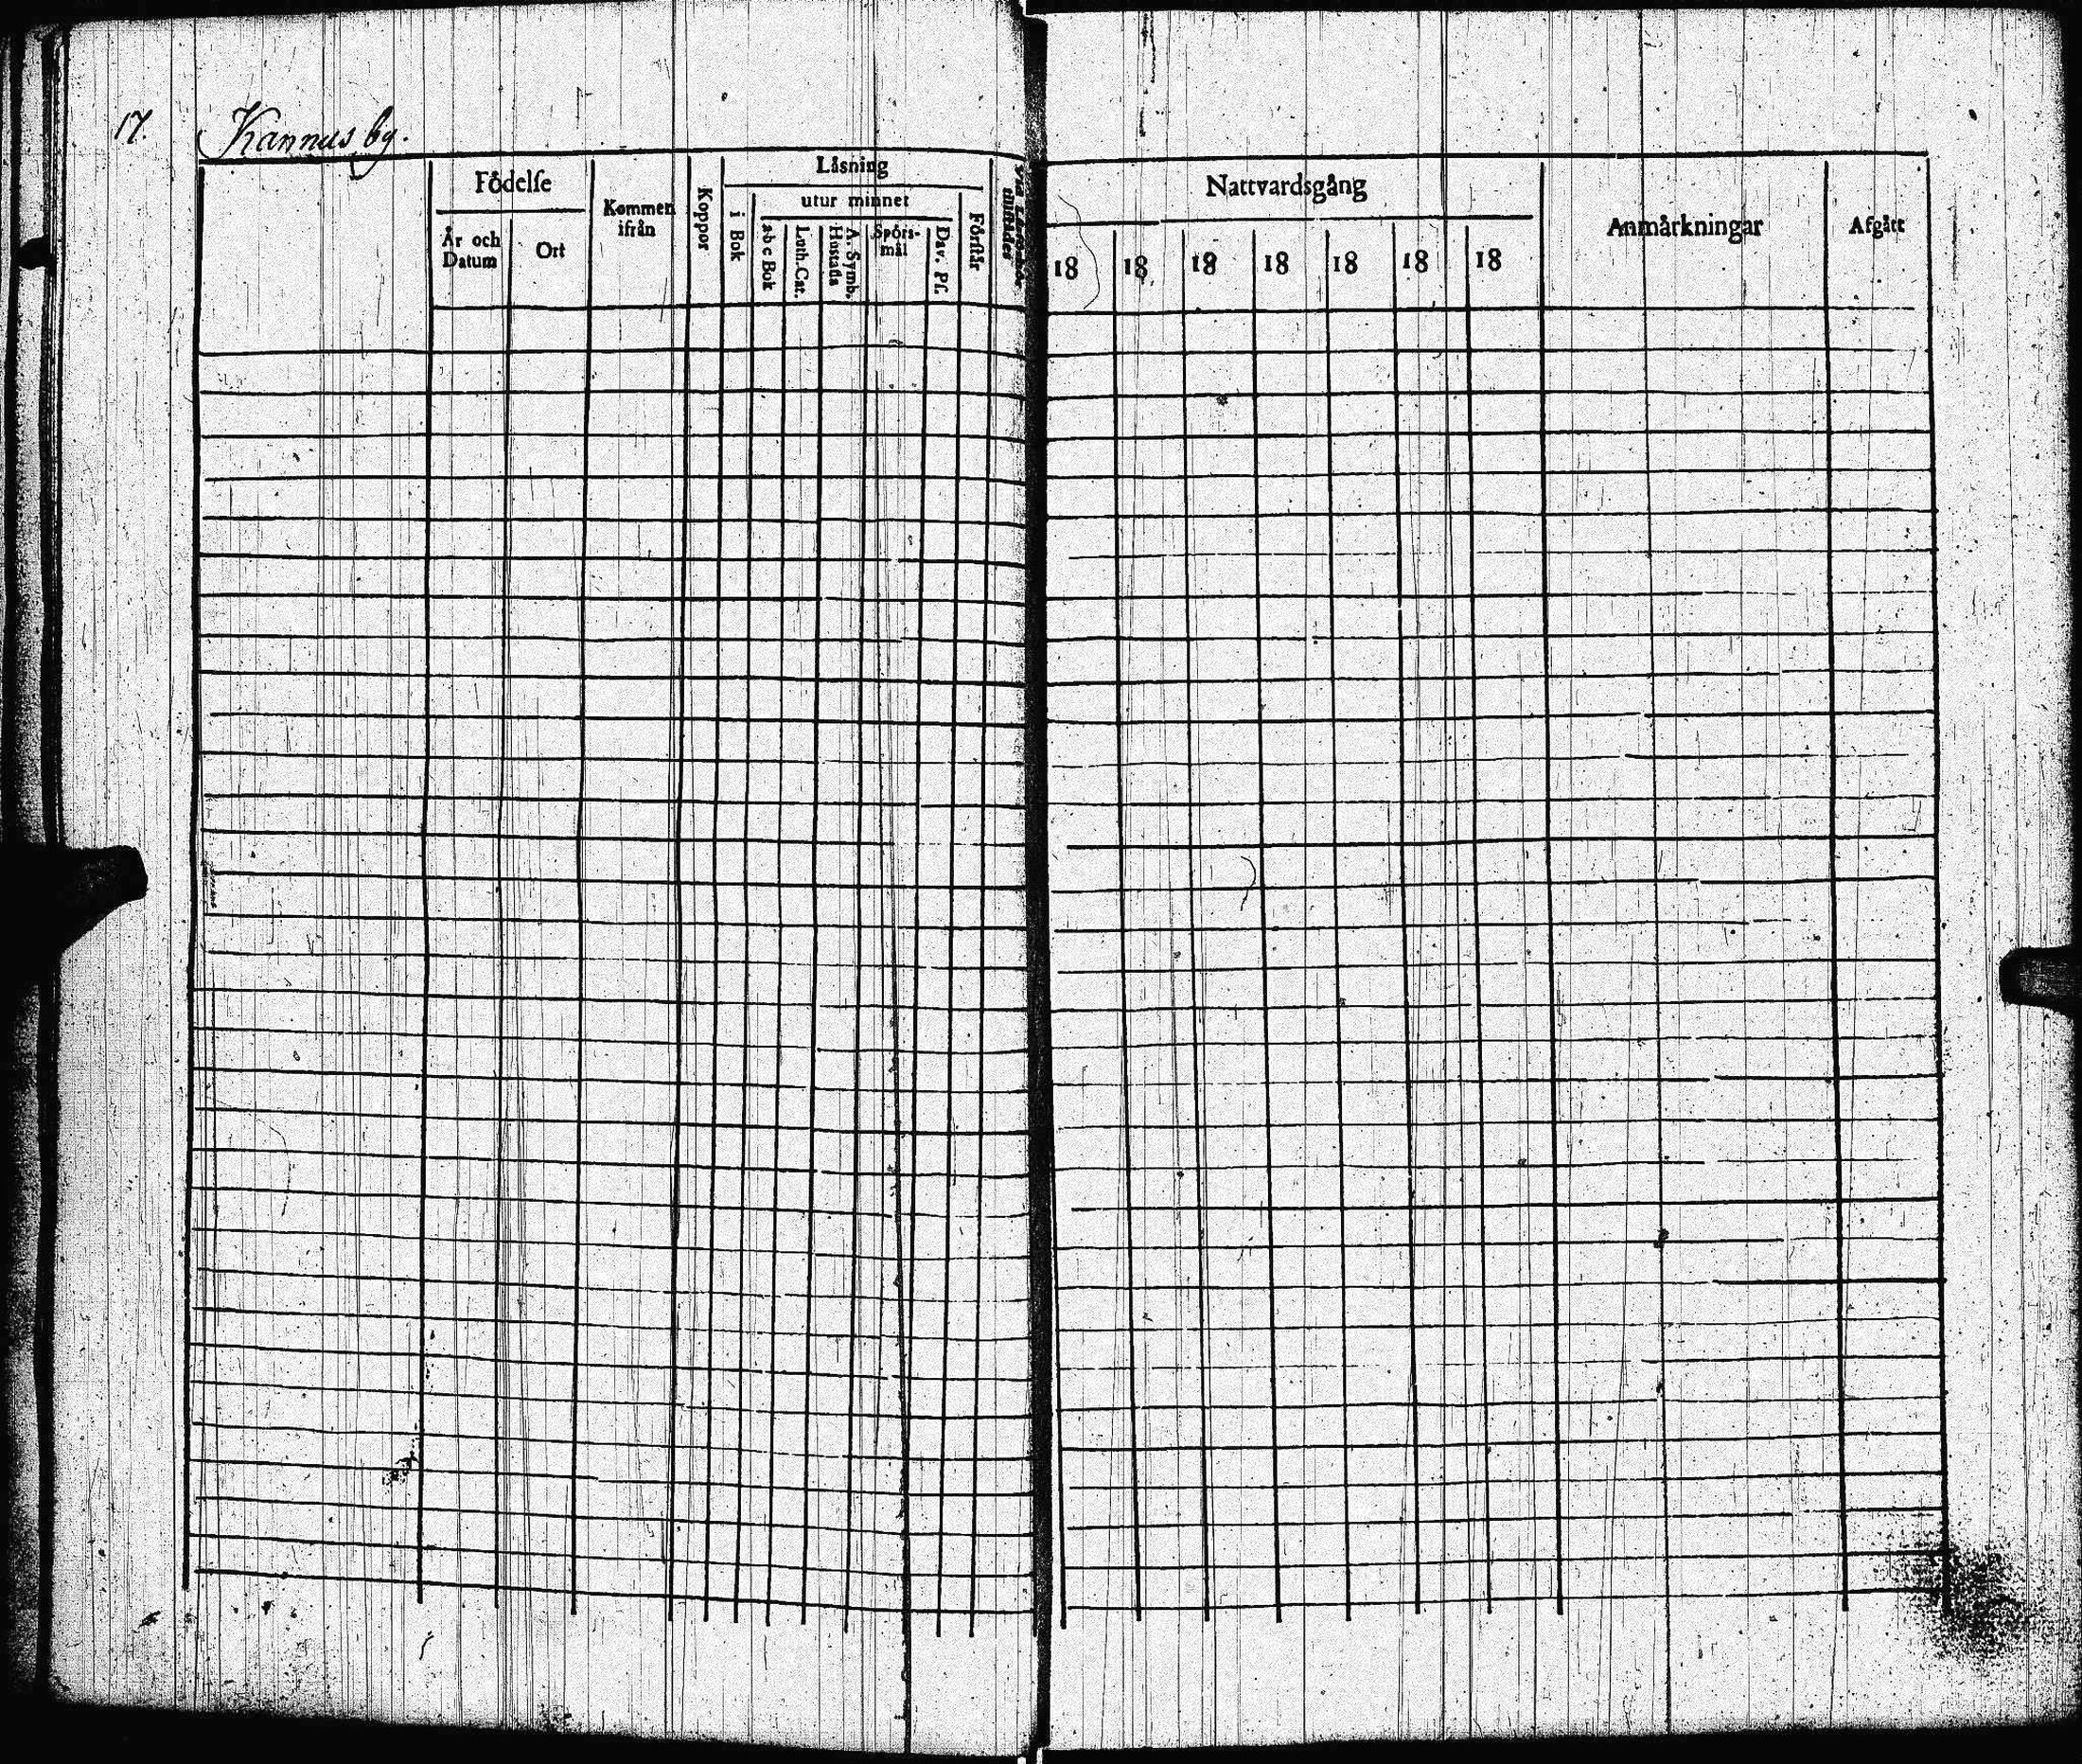 17. Kannus by.
Födelse
År och Datum
Ort
Kommen ifrån
Koppor
Läsning
i Bok
utur minnet
a b c Bok
Luth. Cat.
A. Symb. Hustafla
Spörsmål
Dav. Pf.
Förstår
Nattvardsgång
18 18 18 18 18 18 18
Anmärkningar
Afgått